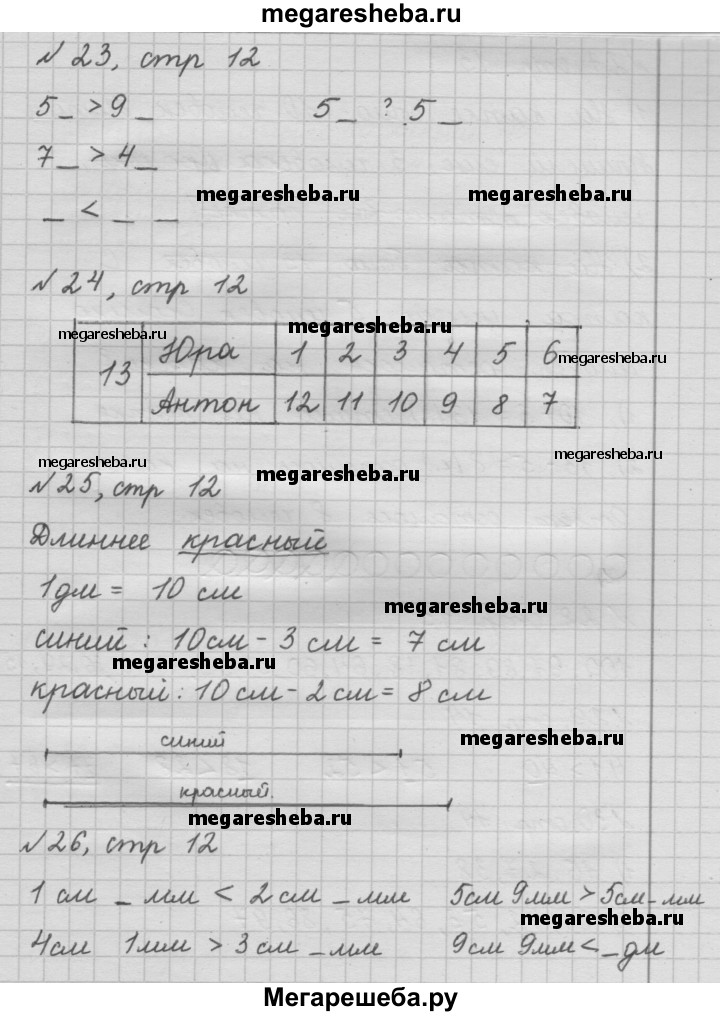 megaresheba.ru
№ 23, стр 12
5_ > 9_ 5_ ? 5_
7_ > 4_
megaresheba.ru megaresheba.ru
_ < _ _
№ 24, стр 12
megaresheba.ru megaresheba.ru megaresheba.ru
13 Юра 1 2 3 4 5 6
Антон 12 11 10 9 8 7
megaresheba.ru megaresheba.ru megaresheba.ru
№ 25, стр 12
Длиннее красный
1дм = 10 см
megaresheba.ru
синий : 10см - 3 см = 7 см
megaresheba.ru
красный : 10 см - 2 см = 8 см
синий megaresheba.ru
красный.
megaresheba.ru
№ 26, стр 12
1 см _ мм < 2 см _ мм 5см 9мм > 5см _ мм
megaresheba.ru
4см 1мм > 3 см _ мм 9см 9мм < _ дм
Мегарешеба.ру